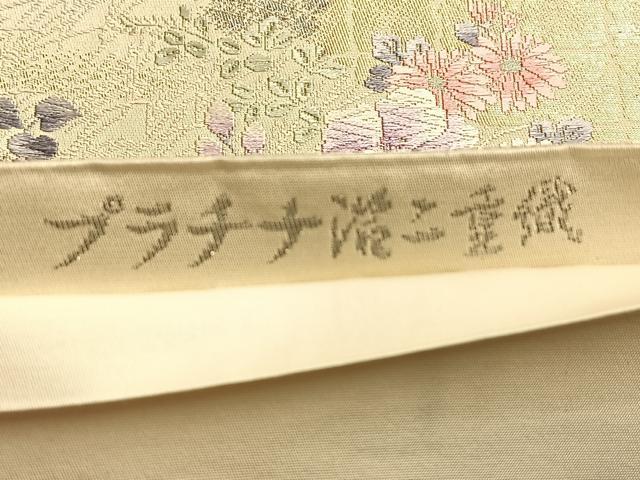 プラチナ二重織